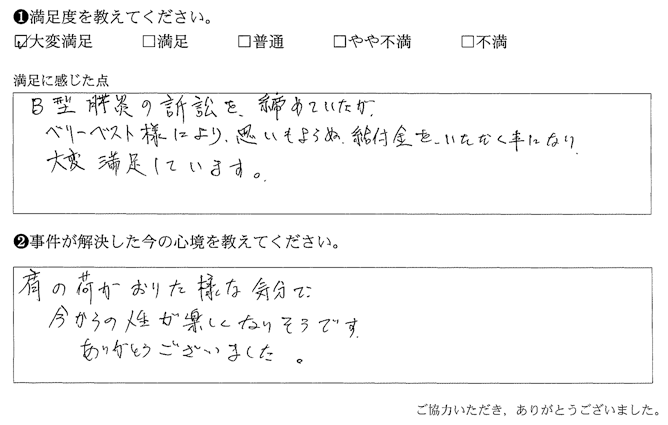 ❶満足度を教えてください。
☑大変満足 □満足 □普通 □やや不満 □不満
満足に感じた点
B型肝炎の訴訟を、締めていたが、
ベリーベスト様により、思いもよらぬ、給付金を、いただく事になり
大変満足しています。
❷事件が解決した今の心境を教えてください。
肩の荷がおりた様な気分で
今からの人生が楽しくなりそうです。
ありがとうございました。
ご協力いただき，ありがとうございました。